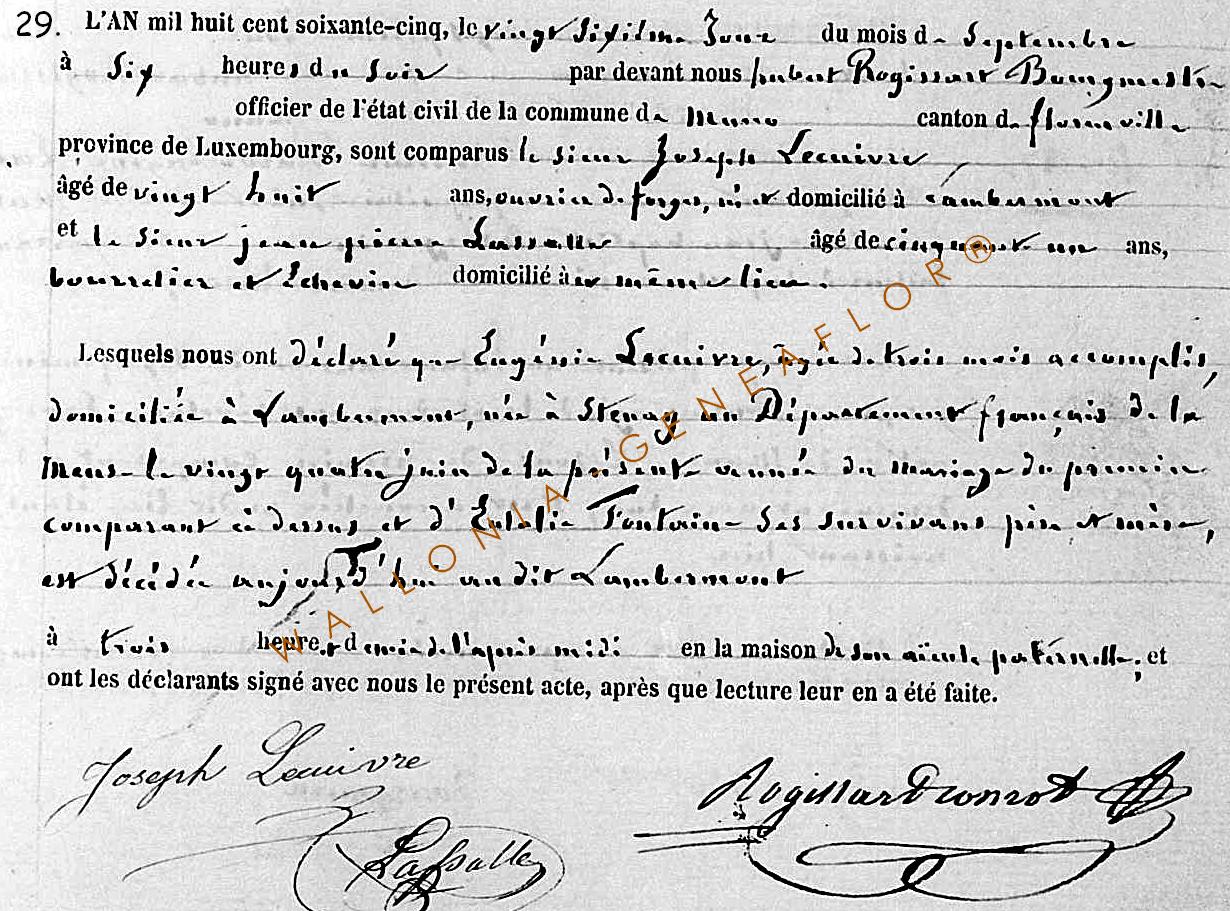 29. L'AN mil huit cent soixante-cinq, le vingt sixième Jour du mois de Septembre
à Six heures du Soir par devant nous hubert Rogissart Bourgmestre
officier de l'état civil de la commune de Muno canton de florenville
province de Luxembourg, sont comparus le sieur Joseph Lecuivre
âgé de vingt huit ans, ouvrier de forges, né et domicilié à Lambermont
et le Sieur jean pierre Lassalle âgé de cinquante un ans,
bourrelier et Echevin domicilié à ce même lieu.
Lesquels nous ont déclaré que Eugénie Lecuivre, âgée de trois mois accomplis,
domiciliée à Lambermont, née à Stenay au Département français de la
Meuse le vingt quatre juin de la présente année du mariage du premier
comparant ci dessus et d'Eulalie Fontaine Ses survivans père et mère,
est décédée aujourd'hui au dit Lambermont
à trois heures et demie de l'après midi en la maison de son aïeule paternelle, et
ont les déclarants signé avec nous le présent acte, après que lecture leur en a été faite.
Joseph Lecuivre
Rogissart
Lassalle
WALLONIA GENEAFLOR®